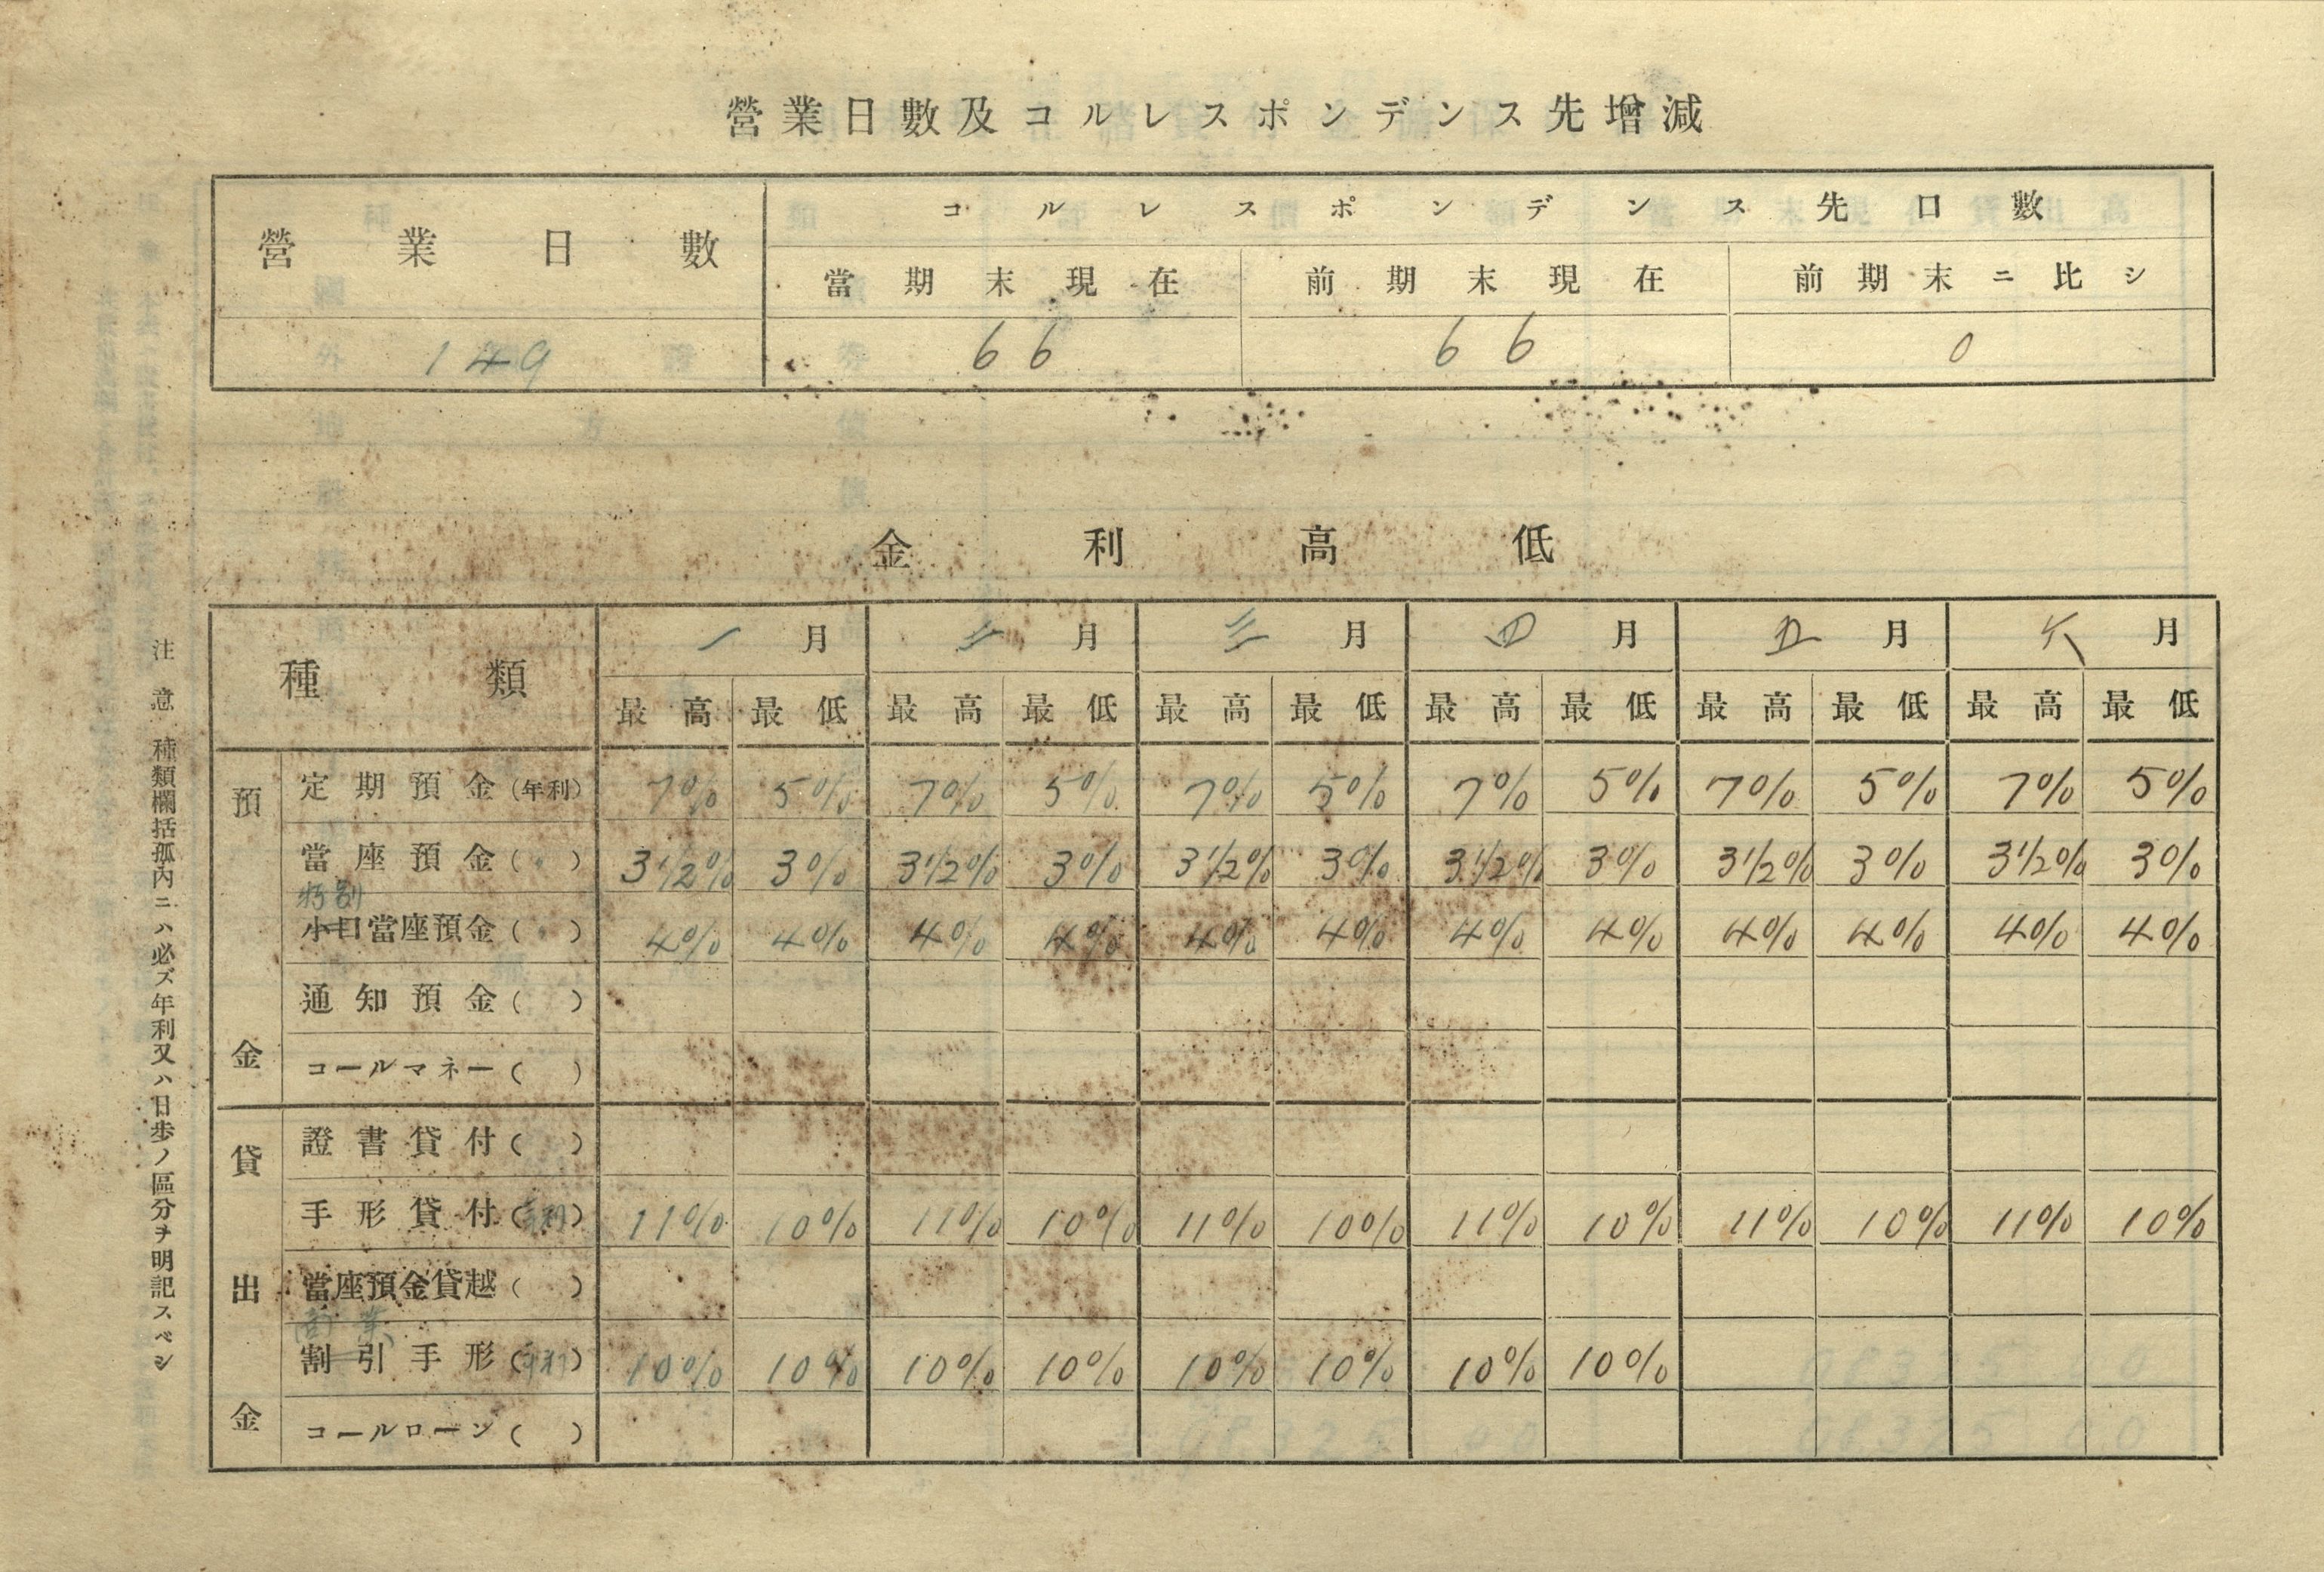 營業日數及コルレスポンデンス先增減
營業日數 コルレスポンデンス先口數
當期末現在 前期末現在 前期末ニ比シ
149 66 66 0
金利高低
種類 一月 二月 三月 四月 五月 六月
最高 最低 最高 最低 最高 最低 最高 最低 最高 最低 最高 最低
預金
定期預金(年利) 7% 5% 7% 5% 7% 5% 7% 5% 7% 5% 7% 5%
當座預金(〃) 3 1/2% 3% 3 1/2% 3% 3 1/2% 3% 3 1/2% 3% 3 1/2% 3% 3 1/2% 3%
特別
小口當座預金(〃) 4% 4% 4% 4% 4% 4% 4% 4% 4% 4% 4% 4%
通知預金( )
コールマネー( )
貸出金
證書貸付( )
手形貸付(年利) 11% 10% 11% 10% 11% 10% 11% 10% 11% 10% 11% 10%
當座預金貸越( )
商業
割引手形(年利) 10% 10% 10% 10% 10% 10% 10% 10%
コールローン( )
注意 種類欄括孤內ニハ必ズ年利又ハ日步ノ區分ヲ明記スベシ